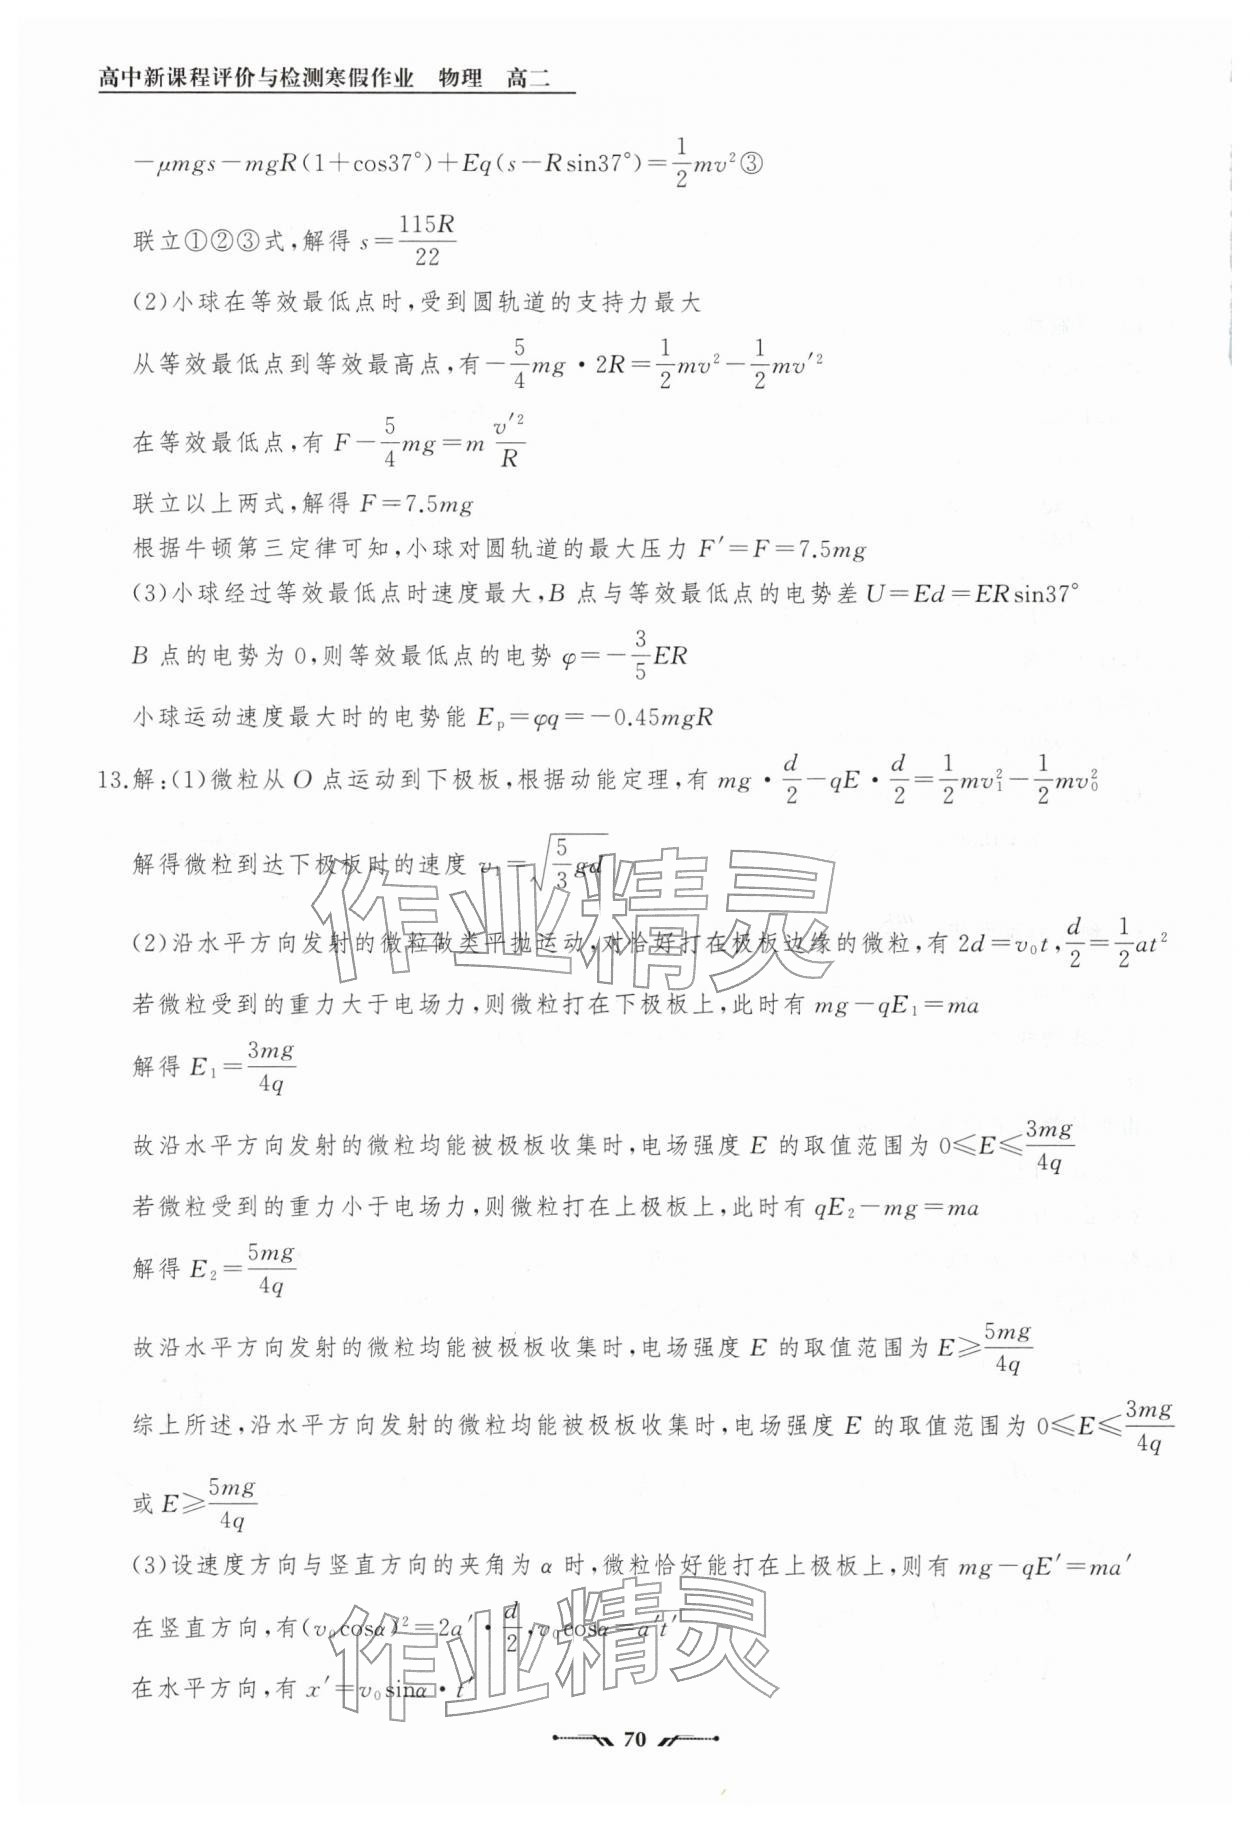 高中新课程评价与检测寒假作业　物理　高二
－μmgs－mgR(1＋cos37°)＋Eq(s－Rsin37°)＝\frac{1}{2}mv²③
联立①②③式,解得 s＝\frac{115R}{22}
(2)小球在等效最低点时,受到圆轨道的支持力最大
从等效最低点到等效最高点,有－\frac{5}{4}mg·2R＝\frac{1}{2}mv²－\frac{1}{2}mv′²
在等效最低点,有 F－\frac{5}{4}mg＝m\frac{v′²}{R}
联立以上两式,解得 F＝7.5mg
根据牛顿第三定律可知,小球对圆轨道的最大压力 F′＝F＝7.5mg
(3)小球经过等效最低点时速度最大,B 点与等效最低点的电势差 U＝Ed＝ERsin37°
B 点的电势为 0,则等效最低点的电势 φ＝－\frac{3}{5}ER
小球运动速度最大时的电势能 Eₚ＝φq＝－0.45mgR
13.解:(1)微粒从 O 点运动到下极板,根据动能定理,有 mg·\frac{d}{2}－qE·\frac{d}{2}＝\frac{1}{2}mv₁²－\frac{1}{2}mv₀²
解得微粒到达下极板时的速度 v₁＝\sqrt{\frac{5}{3}gd}
作业精灵
(2)沿水平方向发射的微粒做类平抛运动,对恰好打在极板边缘的微粒,有 2d＝v₀t,\frac{d}{2}＝\frac{1}{2}at²
若微粒受到的重力大于电场力,则微粒打在下极板上,此时有 mg－qE₁＝ma
解得 E₁＝\frac{3mg}{4q}
故沿水平方向发射的微粒均能被极板收集时,电场强度 E 的取值范围为 0≤E≤\frac{3mg}{4q}
若微粒受到的重力小于电场力,则微粒打在上极板上,此时有 qE₂－mg＝ma
解得 E₂＝\frac{5mg}{4q}
故沿水平方向发射的微粒均能被极板收集时,电场强度 E 的取值范围为 E≥\frac{5mg}{4q}
综上所述,沿水平方向发射的微粒均能被极板收集时,电场强度 E 的取值范围为 0≤E≤\frac{3mg}{4q}
或 E≥\frac{5mg}{4q}
(3)设速度方向与竖直方向的夹角为 α 时,微粒恰好能打在上极板上,则有 mg－qE′＝ma′
在竖直方向,有(v₀cosα)²＝2a′·\frac{d}{2},v₀cosα＝a′t′
作业精灵
在水平方向,有 x′＝v₀sinα·t′
70